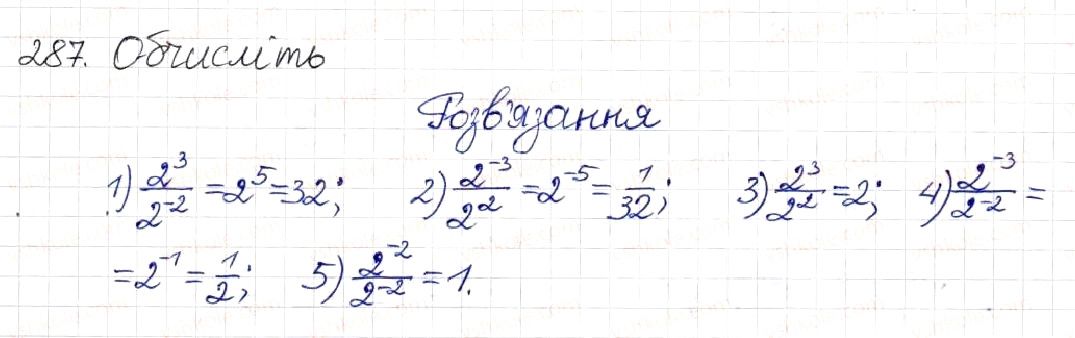 287. Обчисліть
Розв'язання
1) 2³/2⁻² = 2⁵ = 32; 2) 2⁻³/2² = 2⁻⁵ = 1/32; 3) 2³/2² = 2; 4) 2⁻³/2⁻² =
= 2⁻¹ = 1/2; 5) 2⁻²/2⁻² = 1.